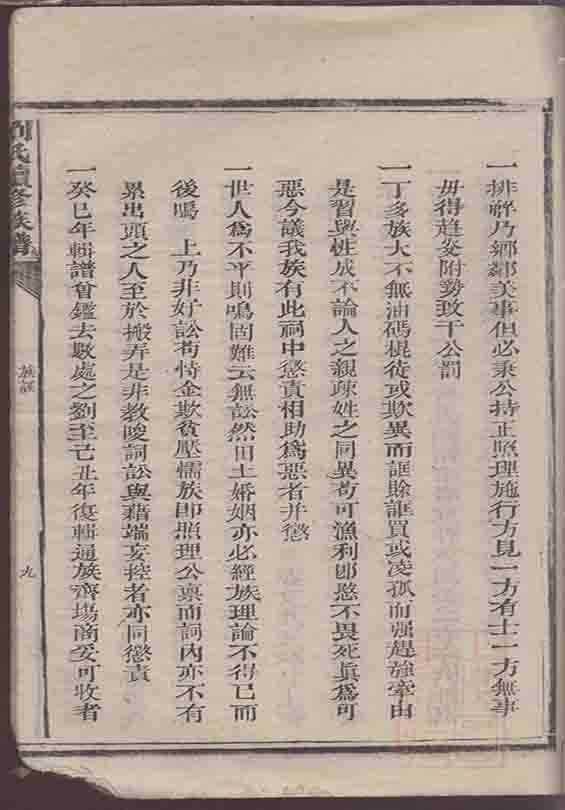 一排解乃鄉鄰美事但必秉公持正照理施行方見一方有士一方無事
毋得趋炎附勢致干公罰
一丁多族大不無油碼棍徒或欺異而誆賒誆買或凌孤而强趕強牽由
是習與性成不論人之親疎姓之同異苟可漁利卽愍不畏死眞爲可
惡今議我族有此祠中懲責相助爲惡者并懲
一世人爲不平則鳴固難云無訟然田土婚姻亦必經族理論不得已而
後鳴 上乃非好訟苟恃金欺貧壓懦族卽照理公禀而詞內亦不有
累出頭之人至於搬弄是非教唆詞訟與藉端妄控者亦同懲責
一癸巳年輯譜曾鑑去數處之劉至己丑年復輯通族齊塲商妥可收者
劉氏續修族譜
族誡
九